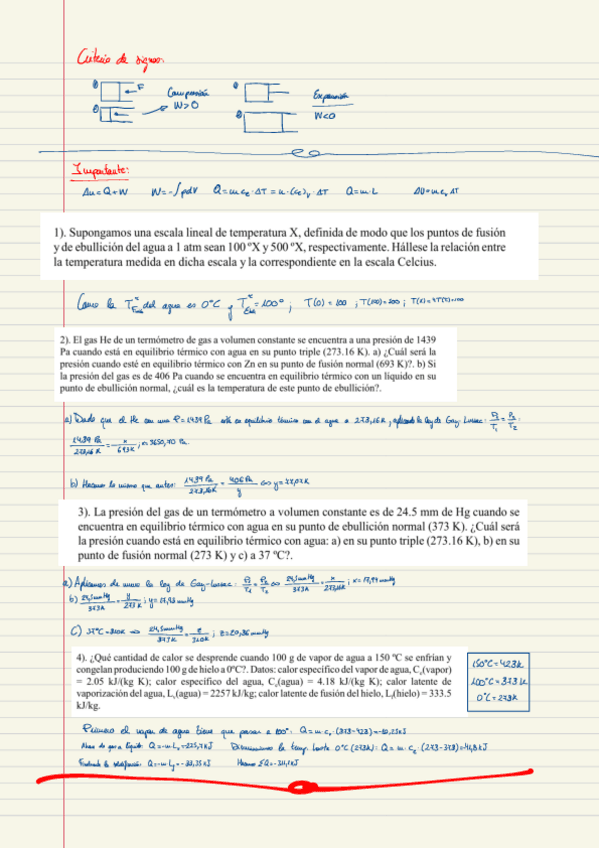 Criterio de signos:
F
Compresión
W>0
Expansión
W<0
Importante:
Δu=Q+W W=-∫pdV Q=m c ΔT = n·(c)ᵥ·ΔT Q=m·L ΔU=m cᵥ ΔT
1). Supongamos una escala lineal de temperatura X, definida de modo que los puntos de fusión
y de ebullición del agua a 1 atm sean 100 ºX y 500 ºX, respectivamente. Hállese la relación entre
la temperatura medida en dicha escala y la correspondiente en la escala Celcius.
Como la T del agua es 0°C y T = 100°; T(0) = 100 ; T(100)=500 ;
2). El gas He de un termómetro de gas a volumen constante se encuentra a una presión de 1439
Pa cuando está en equilibrio térmico con agua en su punto triple (273.16 K). a) ¿Cuál será la
presión cuando esté en equilibrio térmico con Zn en su punto de fusión normal (693 K)?. b) Si
la presión del gas es de 406 Pa cuando se encuentra en equilibrio térmico con un líquido en su
punto de ebullición normal, ¿cuál es la temperatura de este punto de ebullición?.
a) Dado que el He con una P=1439 Pa está en equilibrio térmico con el agua a 273,16K, aplicando la ley de Gay-Lussac: P₁/T₁ = P₂/T₂ :
1439 Pa/273,16K = x/693K ; x=3650,70 Pa.
b) Hacemos lo mismo que antes: 1439 Pa/273,16K = 406 Pa/y ⇔ y=77,07K
3). La presión del gas de un termómetro a volumen constante es de 24.5 mm de Hg cuando se
encuentra en equilibrio térmico con agua en su punto de ebullición normal (373 K). ¿Cuál será
la presión cuando está en equilibrio térmico con agua: a) en su punto triple (273.16 K), b) en su
punto de fusión normal (273 K) y c) a 37 ºC?.
a) Aplicamos de nuevo la ley de Gay-Lussac: P₁/T₁ = P₂/T₂ ⇔ 24,5mmHg/373K = x/273,16K ; x=17,94mmHg
b) 24,5mmHg/373K = y/273K ; y=17,93mmHg
c) 37°C=310K ⇒ 24,5mmHg/373K = z/310K ; z=20,36mmHg
4). ¿Qué cantidad de calor se desprende cuando 100 g de vapor de agua a 150 ºC se enfrían y
congelan produciendo 100 g de hielo a 0ºC?. Datos: calor específico del vapor de agua, Cₑ(vapor)
= 2.05 kJ/(kg K); calor específico del agua, Cₑ(agua) = 4.18 kJ/(kg K); calor latente de
vaporización del agua, Lᵥ(agua) = 2257 kJ/kg; calor latente de fusión del hielo, L(hielo) = 333.5
kJ/kg.
150°C=423K
100°C=373K
0°C=273K
Primero el vapor de agua tiene que pasar a 100°: Q = m·cₑ·(373-423)=-10,25kJ
Pasa de gas a líquido: Q=-m·Lᵥ=-225,7kJ Disminuimos la temp. hasta 0°C (273K): Q = m·cₑ (273-373)=-41,8kJ
Q=-m L=-33,35kJ Hacemos ΣQ=-311,1kJ